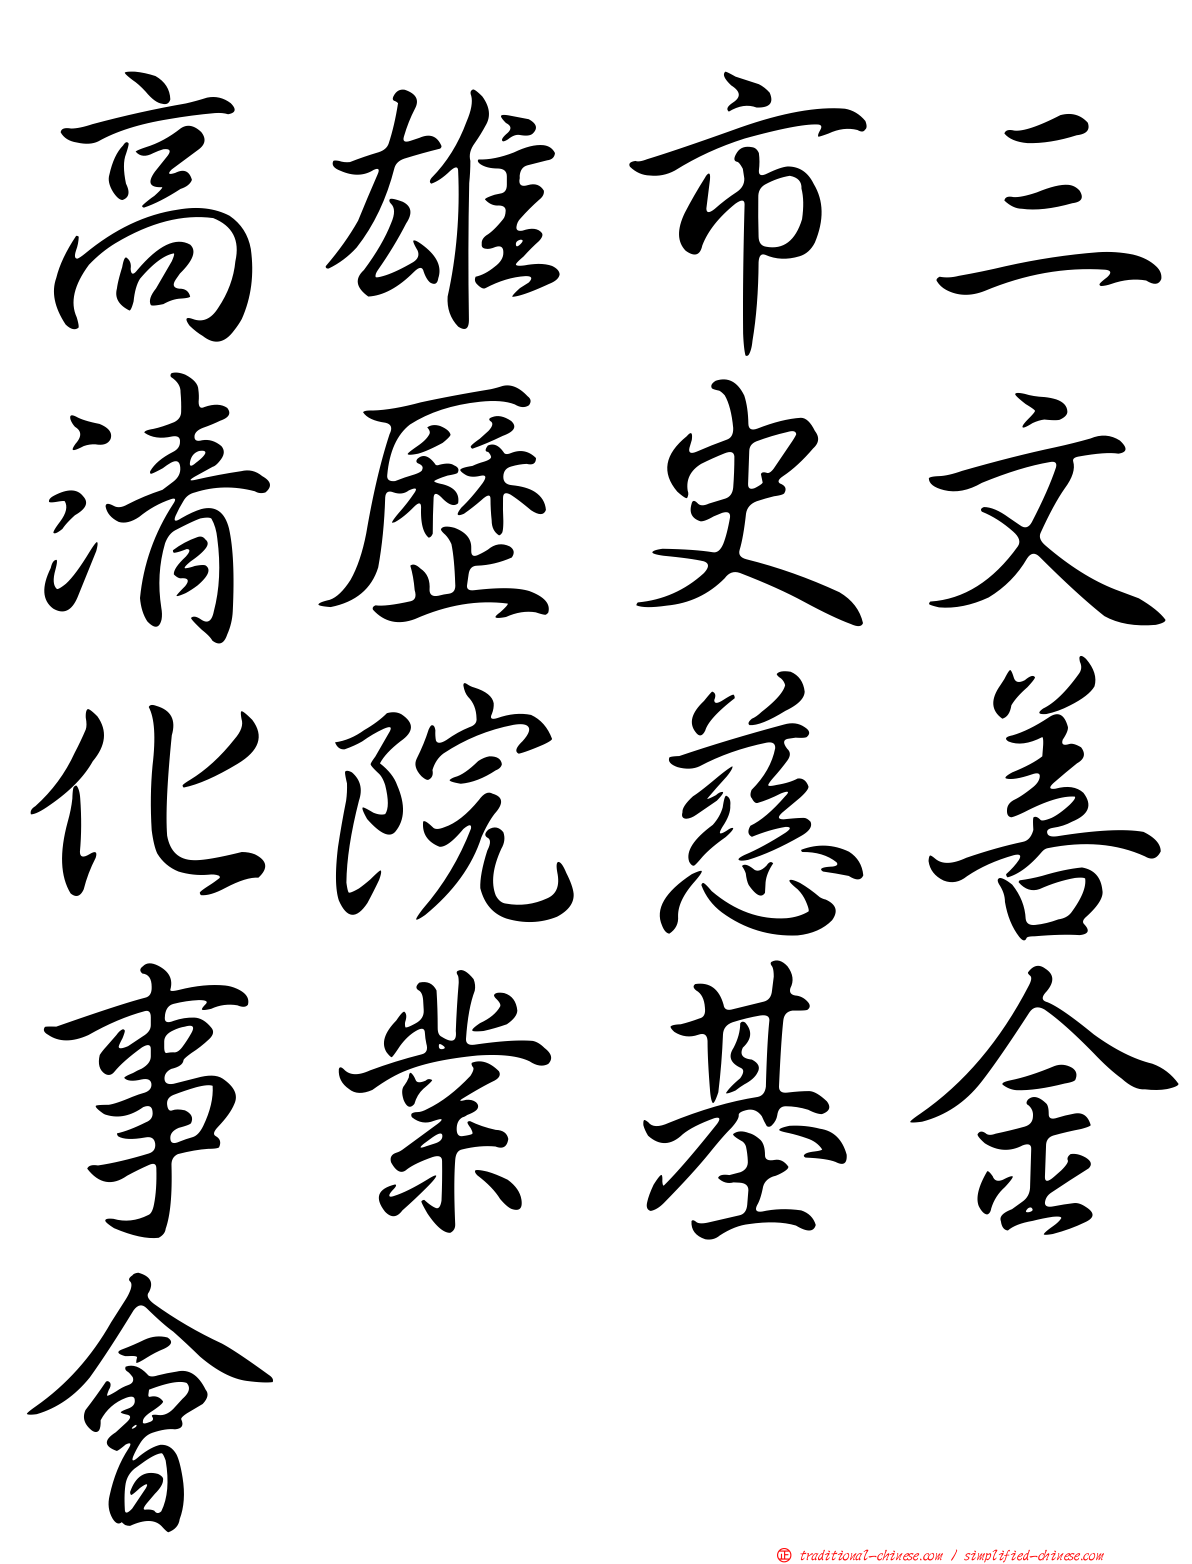 高雄市三
清歷史文
化院慈善
事業基金
會
正 traditional-chinese.com / simplified-chinese.com